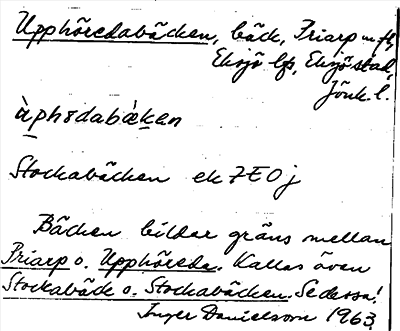 Upphöredabäcken, bäck, Priarp m. fl.,
Eksjö lfs, Eksjö stad,
Jönk. l.
àphödabäken
Stockabäcken ek 7E0j
Bäcken bildar gräns mellan
Priarp o. Upphöreda. Kallas även
Stockabäck o. Stockabäcken. Se dessa!
Inger Danielsson 1963.